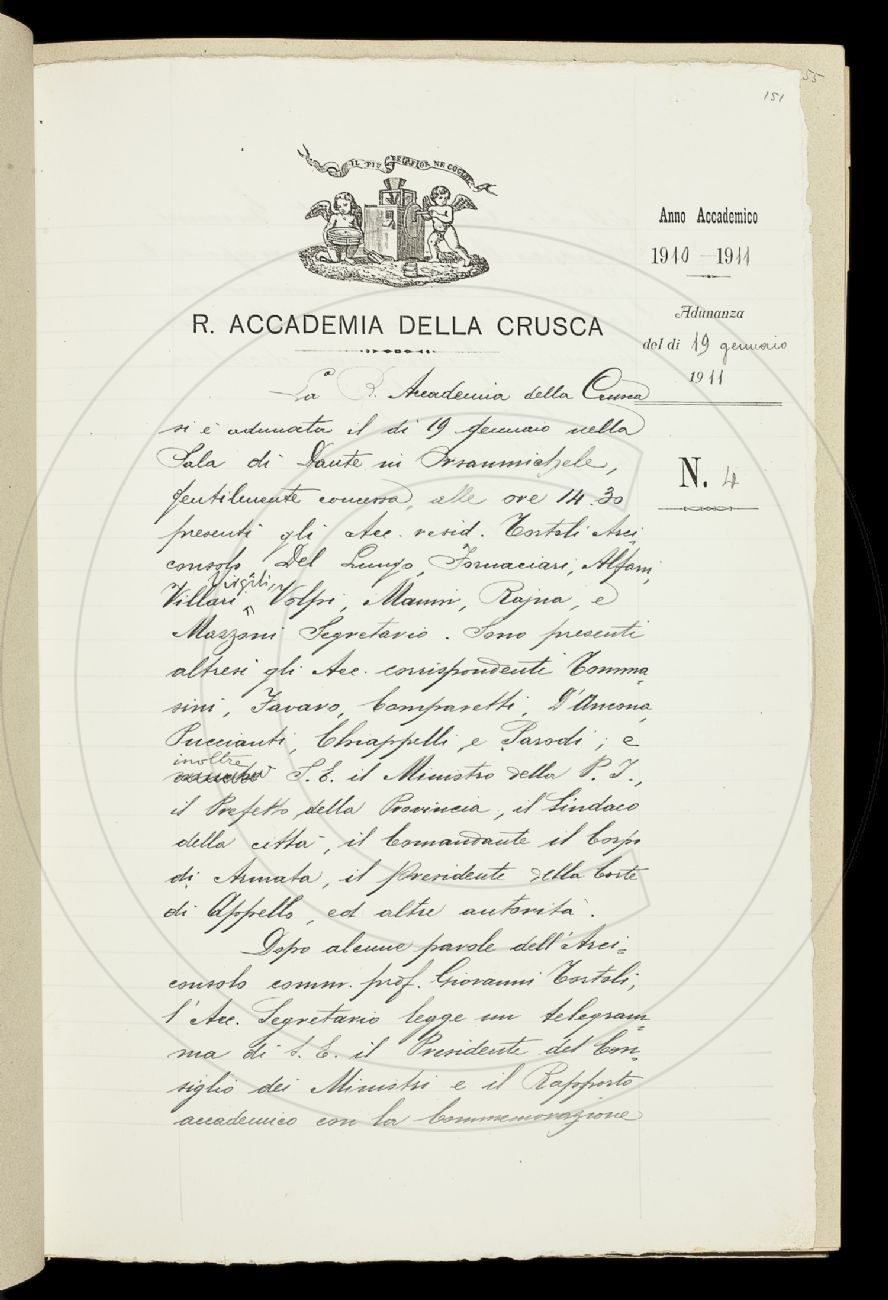 55
151
IL PIÙ BEL FIOR NE COGLIE
Anno Accademico
1910-1911
R. ACCADEMIA DELLA CRUSCA
Adunanza
del dì 19 gennaio
1911
N. 4
La R. Accademia della Crusca
si è adunata il dì 19 gennaio nella
Sala di Dante in Orsanmichele,
gentilmente concessa, alle ore 14.30
presenti gli Acc. resid. Tortoli Arci-
consolo, Del Lungo, Fornaciari, Alfani,
Villari, Virgilii, Volpi, Manni, Rajna, e
Mazzoni Segretario. Sono presenti
altresì gli Acc. corrispondenti Tomma-
sini, Favaro, Comparetti, D'Ancona,
Puccianti, Chiappelli, e Parodi; e
inoltre S. E. il Ministro della P. I.,
il Prefetto della Provincia, il Sindaco
della città, il Comandante il Corpo
di Armata, il Presidente della Corte
di Appello, ed altre autorità.
Dopo alcune parole dell'Arci=
consolo comm. prof. Giovanni Tortoli,
l'Acc. Segretario legge un telegram-
ma di S. E. il Presidente del Con-
siglio dei Ministri e il Rapporto
accademico con la Commemorazione